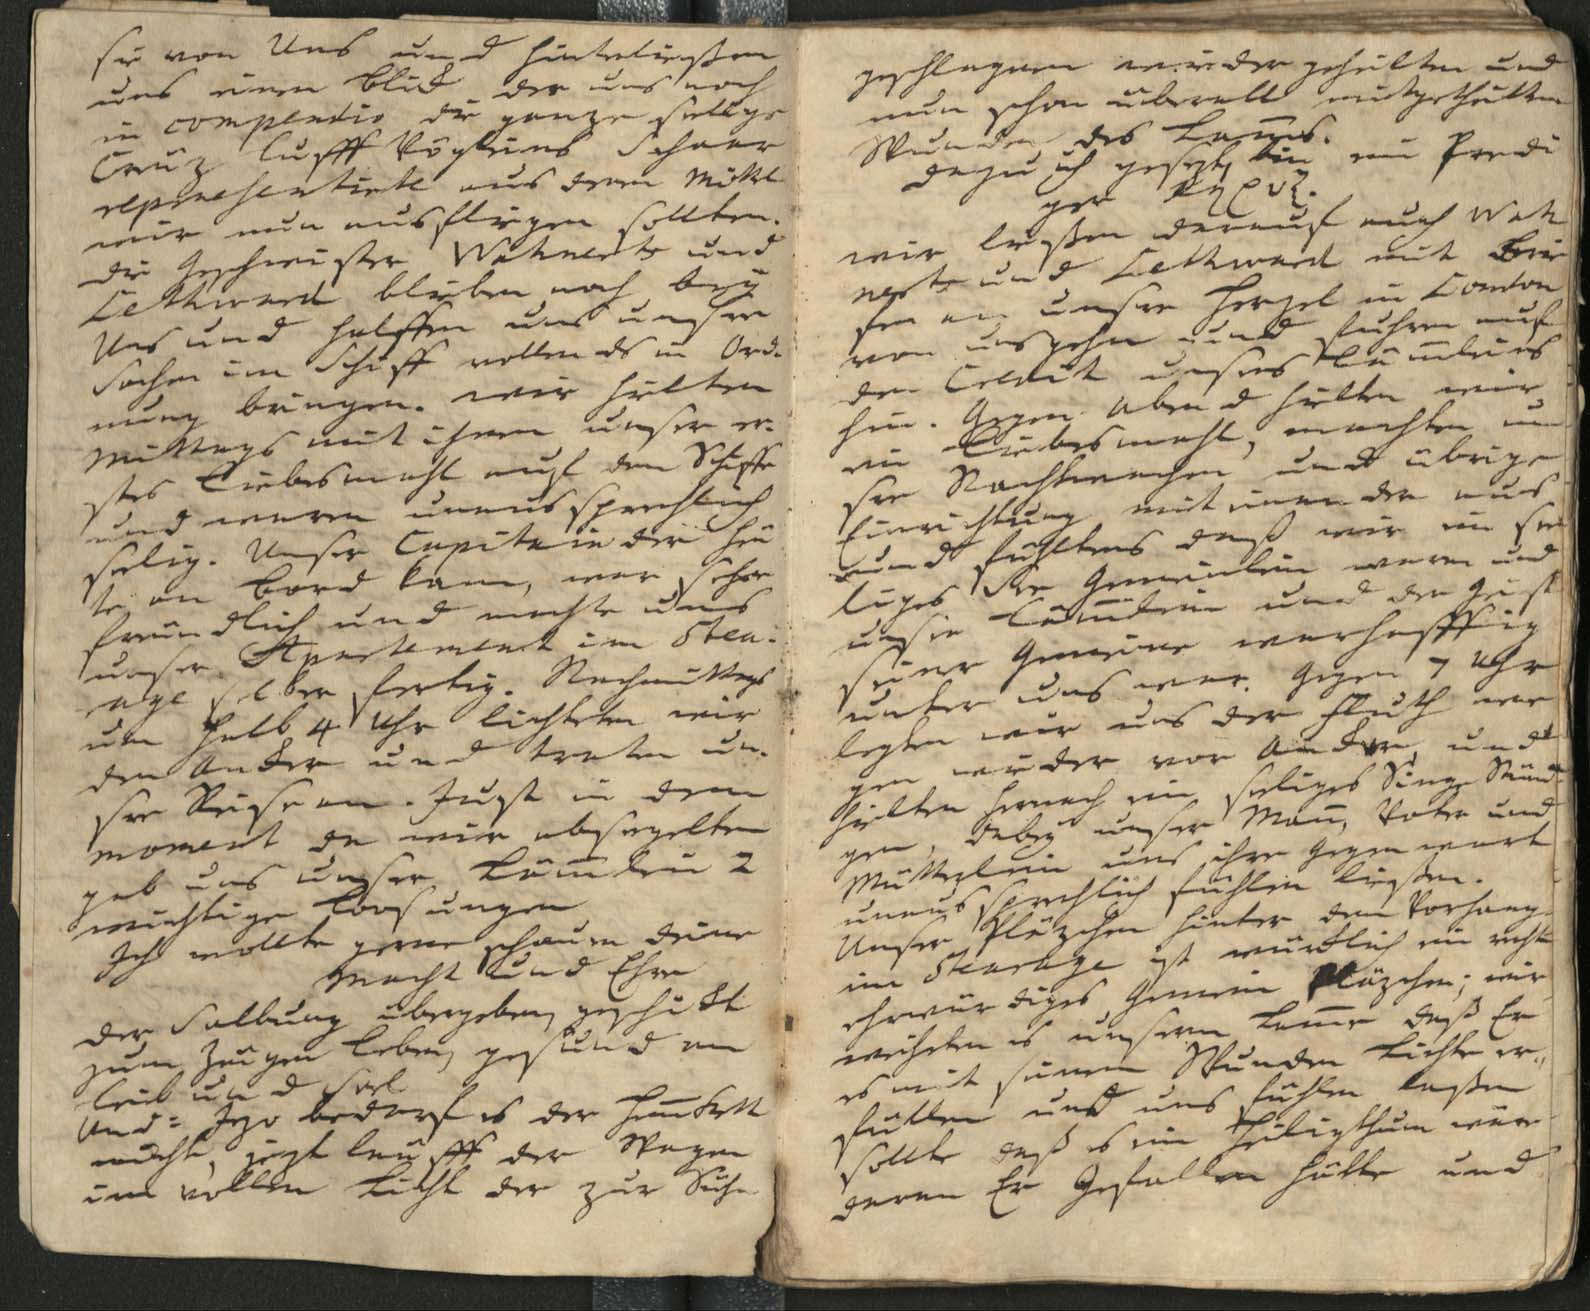 sie von Uns und hinterließen
uns einen Blick der uns noch
in compendio die ganze selige
Creuz Lufft Vögleins Schaar
representirte aus deren Mittel
wir nun ausfliegen sollten.
die Geschwister Wahnerts und
Lethward blieben noch bey
Uns und halffen uns unsre
Sachen im Schiff vollends in Ord-
nung bringen. wir hielten
Mittags mit ihnen unser er-
stes Liebesmahl auf dem Schiffe
und waren unaussprechlich
selig. Unser Capitain der heu
te an Bord kam, war sehr
freundlich und machte uns
unser Apartement im Stea-
rage selber fertig. Nachmittags
um halb 4 Uhr lichteten wir
den Ancker und traten un-
sre Reise an. Just in dem
moment da wir absegelten
gab uns unser Lämlein 2
wichtige Loosungen
Ich wollte gerne schauen deine
Macht und Ehre
der Salbung übergeben, geschickt
zum Zeugen Leben, gesund an
Leib und Seel
Und: Jezo bedarf es der
nicht, jezt läufft der Wagen
im vollen Licht der zur Sich
geschlagenen wieder geheilten und
nun schon überall mitgetheilten
Wunden des Lamms.
dazu ich gesezt bin ein Predi
ger
wir ließen darauf auch Wah
nerts und Lethward mit Brie
fen an unsre Herzel in London
von uns gehn und fuhren auf
den Celait unsers Lämleins
hin. Gegen Abend hielten wir
ein Liebesmahl, machten un
sre Nachtwachen und übrige
Einrichtung mit einander aus
und fühltens daß wir ein see
liges See Gemeinlein waren und
unser Lämlein und der Geist
seiner Gemeine warhafftig
unter uns war. Gegen 7 Uhr
legten wir uns der Fluth we
gen wieder vor Ancker, und
hielten hernach ein seliges Singe Stünd
gen, dabey unser Mann, Vater und
Mütterlein uns ihre Gegenwart
unaussprechlich fühlen ließen.
Unser Pläzchen hinter dem Vorhang
im Stearage ist würcklich ein recht
ehrwürdiges Gemein Pläzchen; wir
weiheten es unserm Lamme daß Er
es mit seinem Wunden Lichte er-
füllen und uns fühlen laßen
sollte daß es ein Heiligthum wäre
daran Er Gefallen hätte und